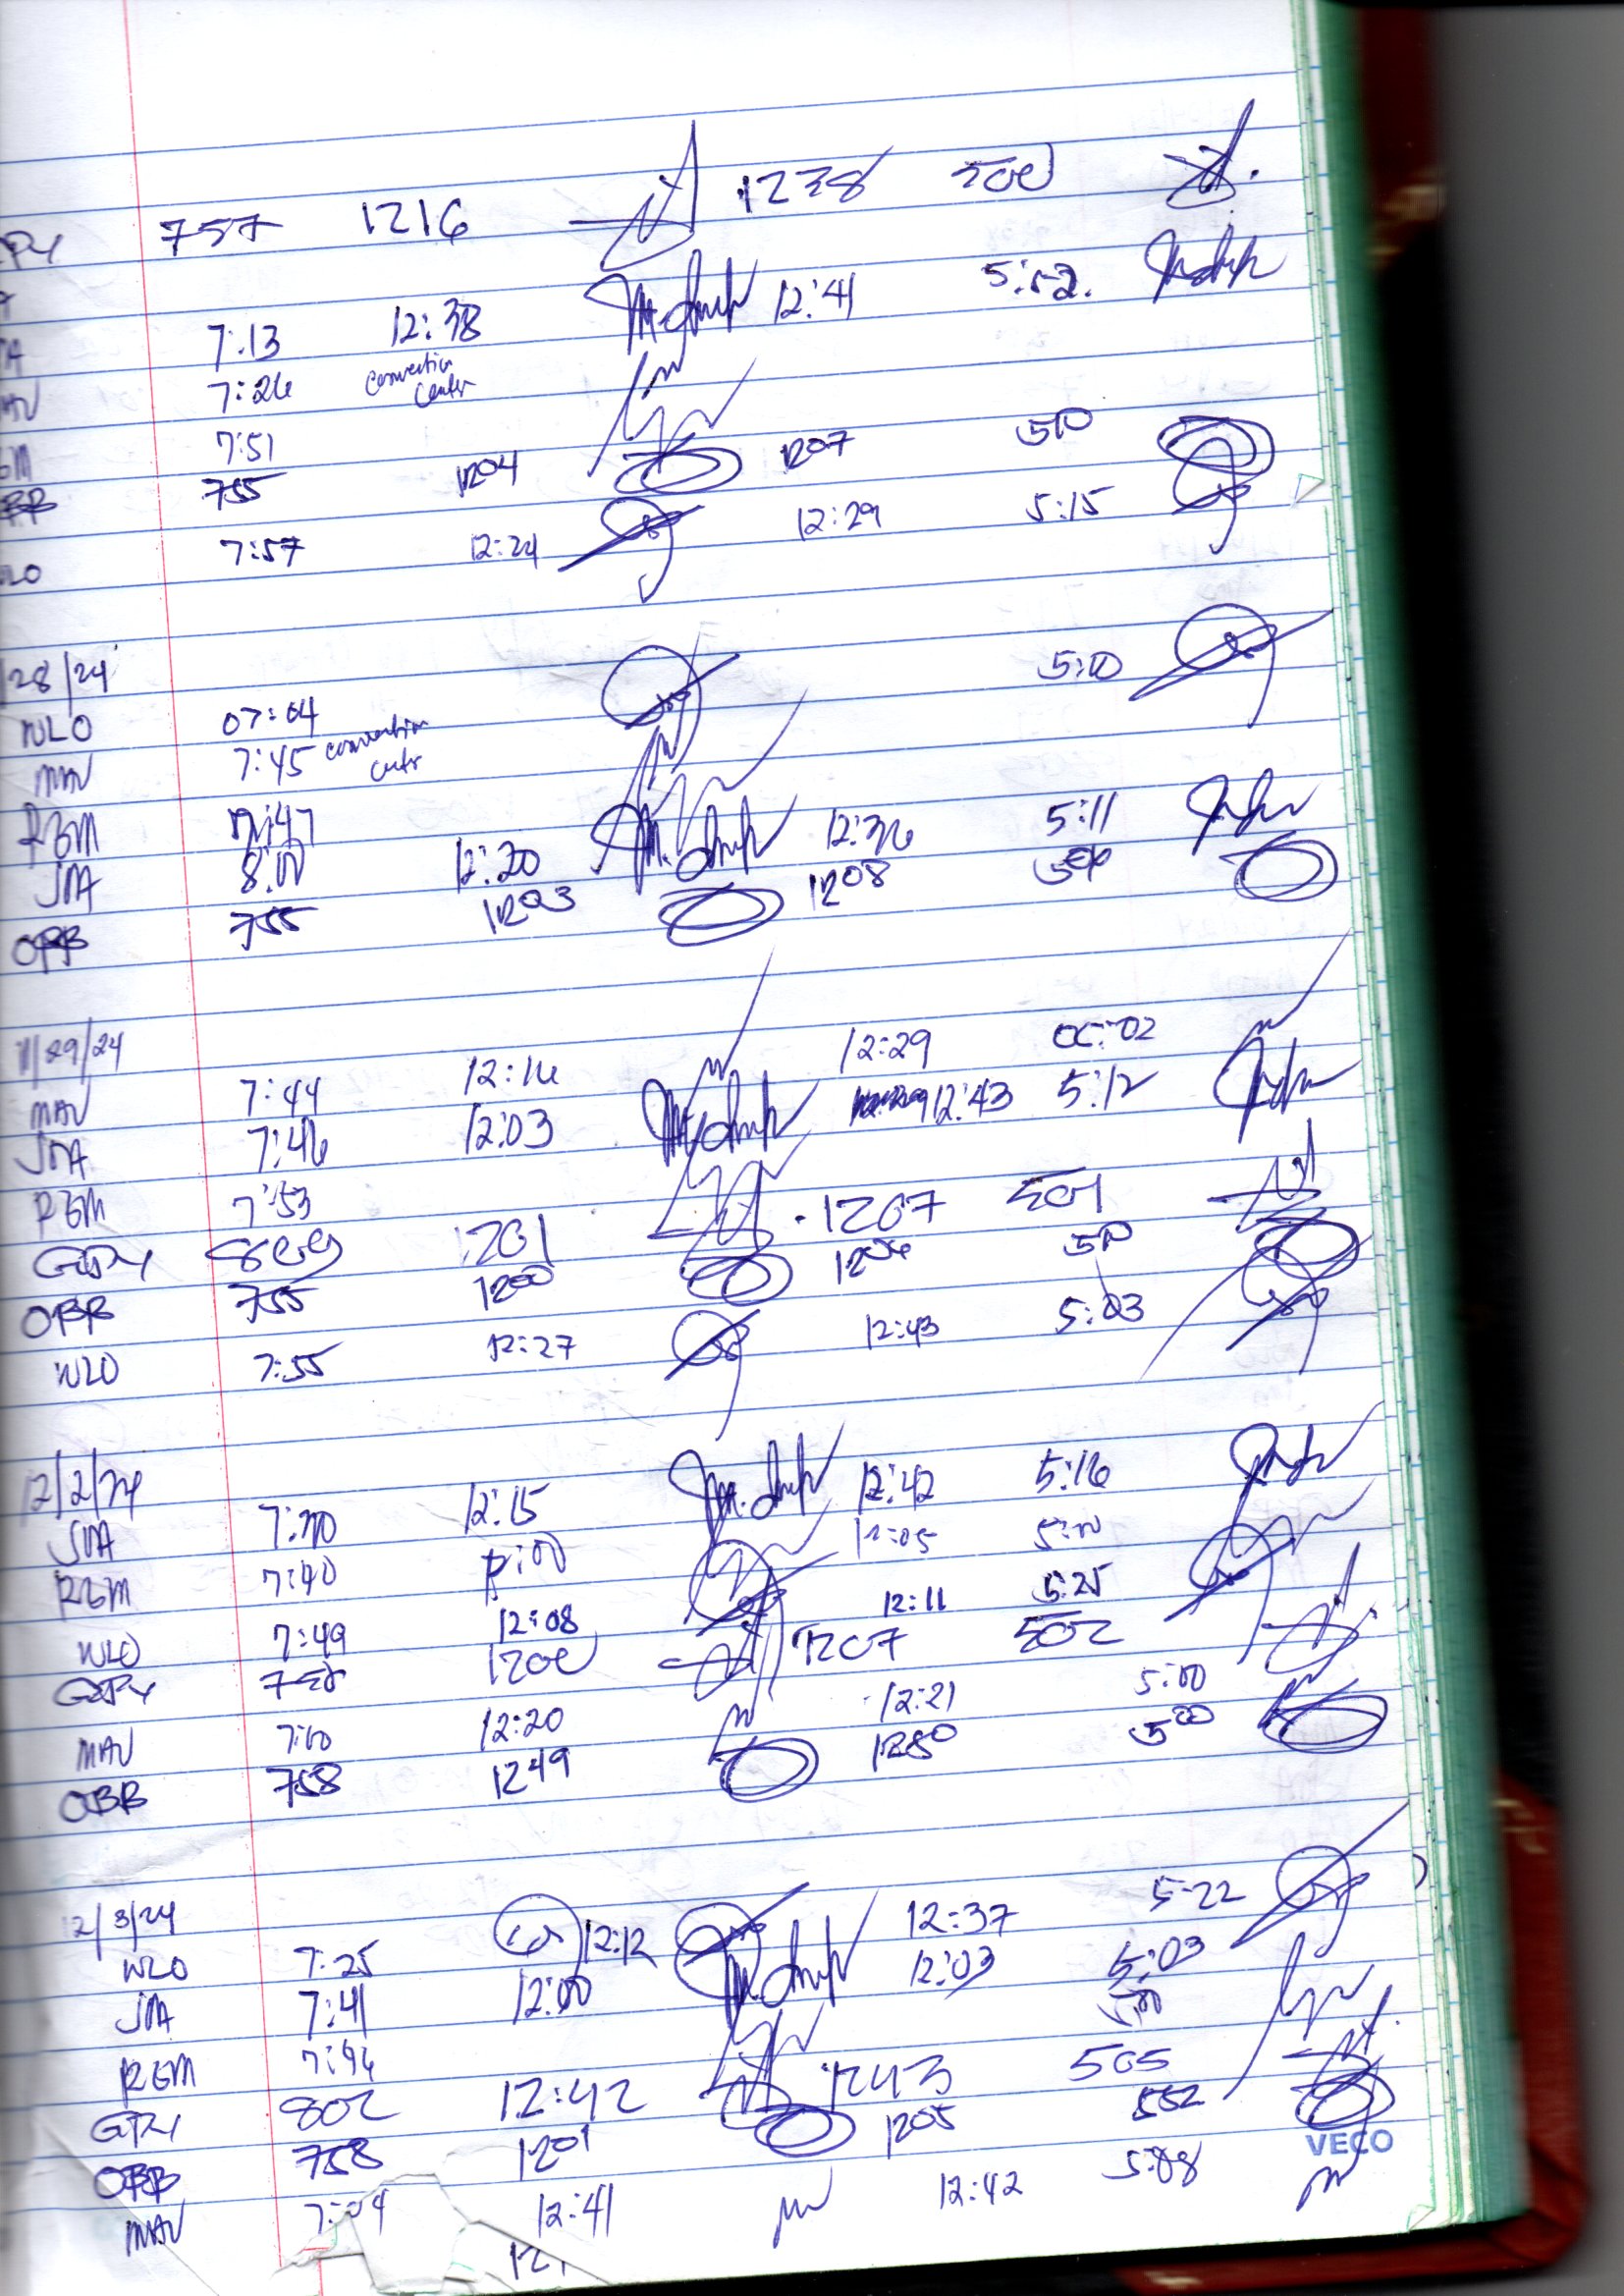 757 1216 1238 500
7:13 12:38 12:41 5:02.
7:26 convention center
7:51
755 1204 1207 510
7:57 12:24 12:29 5:15
28/24
WLO 07:04 5:10
MAV 7:45 convention center
RGM 7:47
JMA 8:00 12:20 12:36 5:11
OBB 755 1203 1208 506
11/29/24
MAV 7:44 12:16 12:29 05:02
JMA 7:46 12:03 12:43 5:12
RGM 7:53
GPY 809 1201 1207 501
OBB 755 1200 1206 510
WLO 7:55 12:27 12:43 5:03
12/2/24
JMA 7:30 12:15 12:42 5:16
RGM 7:40 12:05 5:00
WLO 7:49 12:08 12:11 5:25
GPY 1200 1207 502
MAV 12:20 12:21 5:00
OBB 758 1249 1250 500
12/3/24
WLO 7:25 12:12 12:37 5:22
JMA 7:41 12:00 12:03 5:03
RGM 7:46 500
GPY 802 12:42 1243 505
OBB 758 1201 1205 552
VECO
MAV 12:41 12:42 5:08